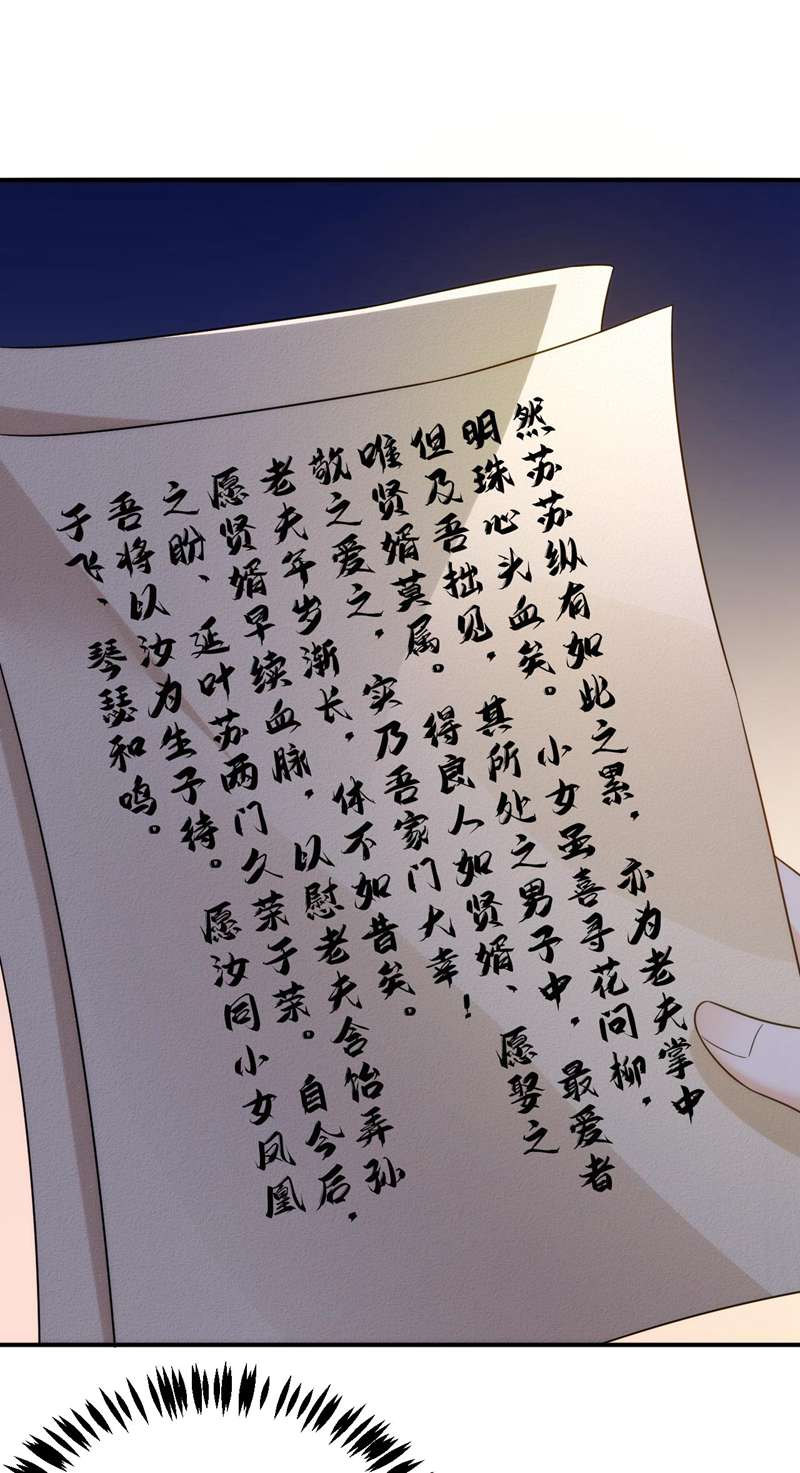 然苏苏纵有如此之累，亦为老夫掌中
明珠心头血矣。小女虽喜寻花问柳，
但及吾拙见，其所处之男子中，最爱者
唯贤婿莫属。得良人如贤婿、愿娶之
敬之爱之，实乃吾家门大幸！
老夫年岁渐长，体不如昔矣。
愿贤婿早续血脉，以慰老夫含饴弄孙
之盼、延叶苏两门久荣于荣。自今后，
吾将以汝为生子待。愿汝同小女凤凰
于飞、琴瑟和鸣。